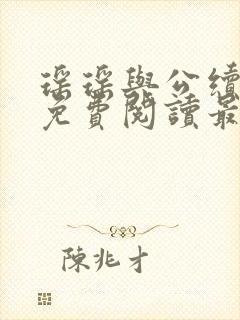 瑶瑶與公續
免費閱讀最
陳兆才